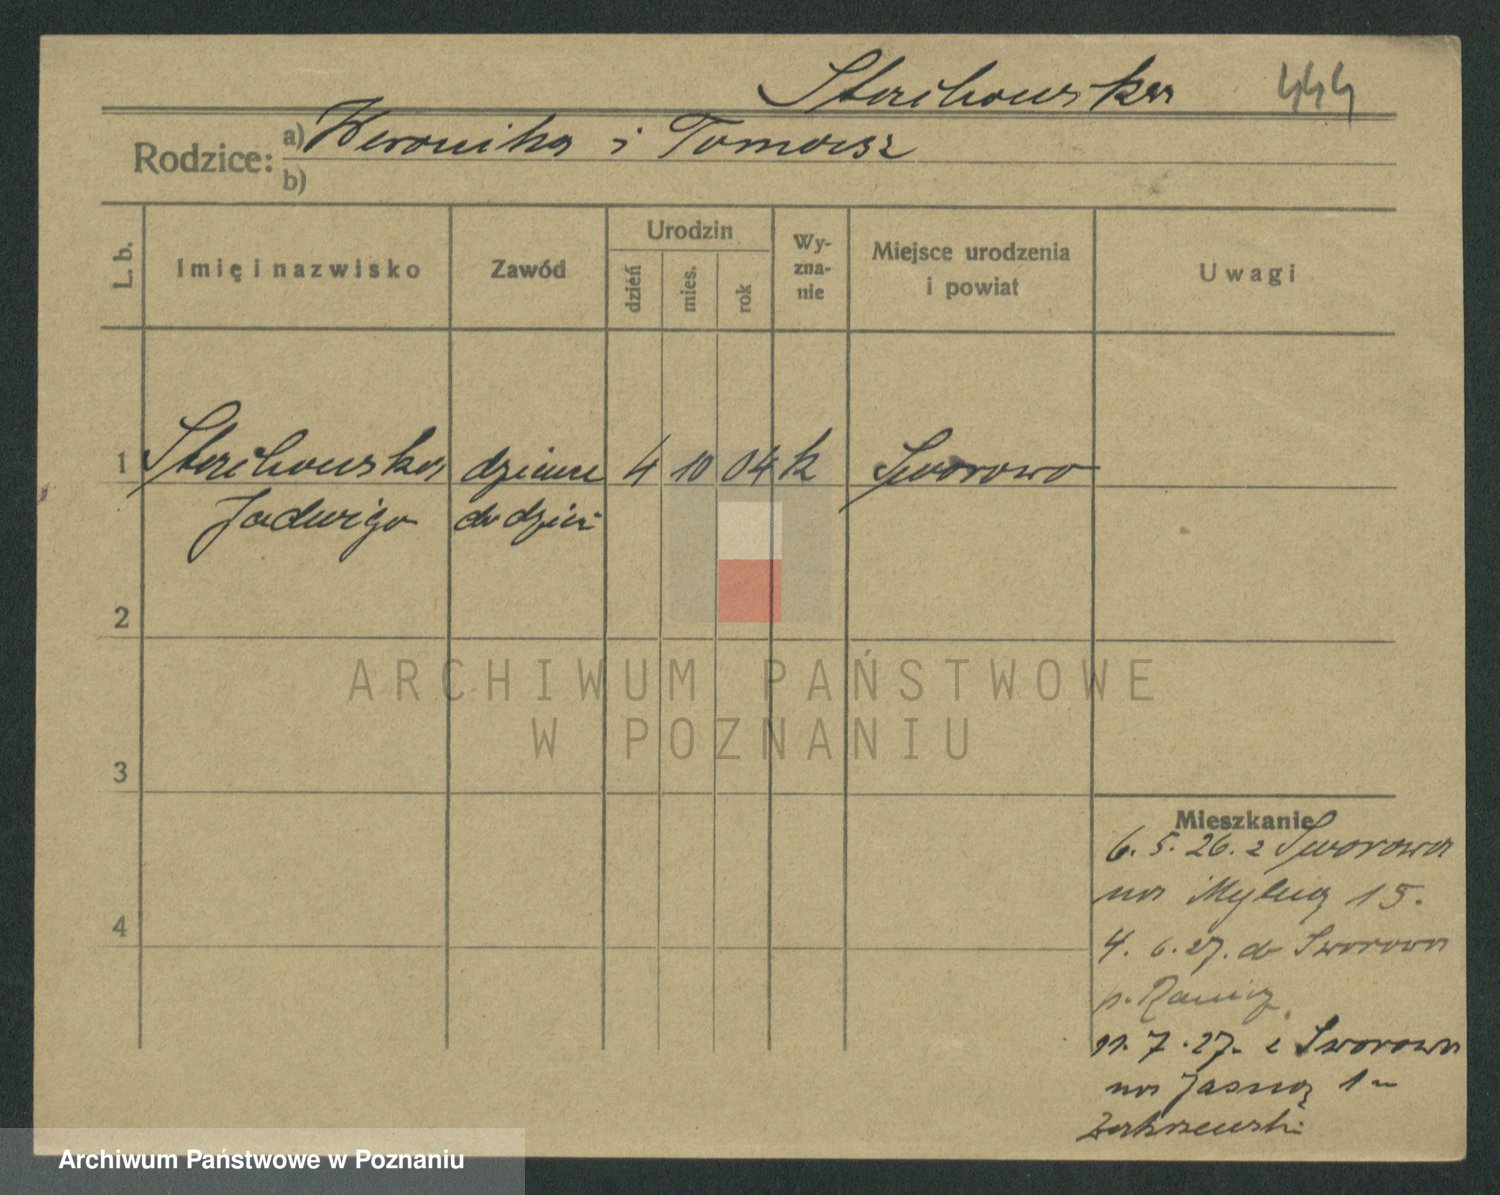 Stachowska 444
Rodzice: a) Weronika i Tomasz
b)
L. b. Imię i nazwisko Zawód Urodzin dzień mies. rok Wy-zna-nie Miejsce urodzenia i powiat Uwagi
1 Stachowska dziewcz 4 10 04 k Sworowo
Jadwiga do dzieci
2
3
4
Mieszkanie
6. 5. 26. z Sworowa
na Mylną 15.
4. 6. 27. do Sworowa
p. Rawicz
11. 7. 27. z Sworowa
na Jasną 1
Zakrzewski
ARCHIWUM PAŃSTWOWE
W POZNANIU
Archiwum Państwowe w Poznaniu